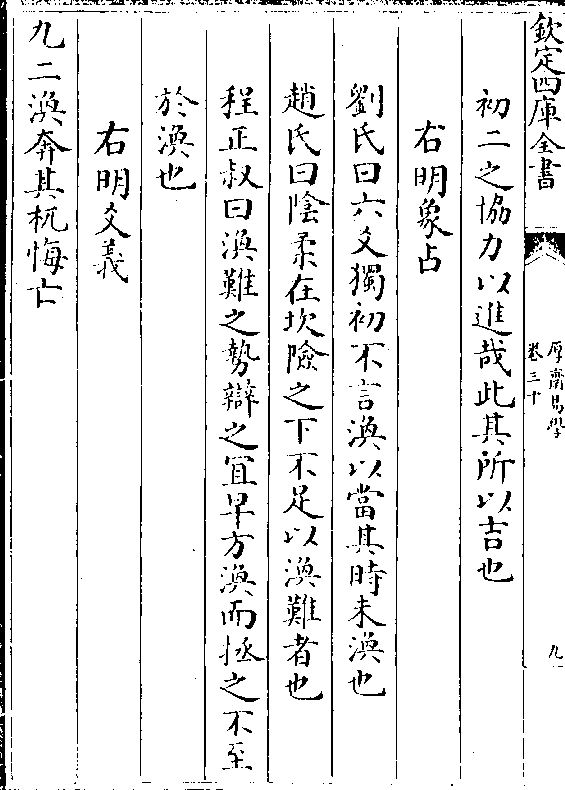 欽定四庫全書
厚齋易學
卷三十
九
初二之協力以進哉此其所以吉也
右明象占
劉氏曰六爻獨初不言渙以當其時未渙也
趙氏曰陰柔在坎險之下不足以渙難者也
程正叔曰渙難之勢辯之宜早方渙而拯之不至
於渙也
右明爻義
九二渙奔其杌悔亡